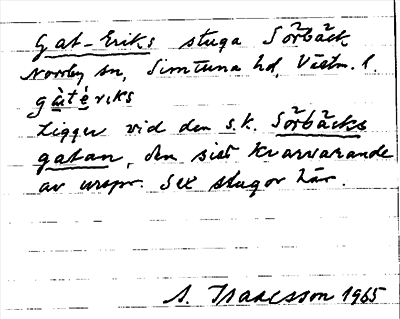 Gat-Eriks stuga Sörbäck
Norrby sn, Simtuna hd, Västm. l
gàtériks
Ligger vid den s.k. Sörbäcks
gatan, den sist kvarvarande
av urspr. sex stugor här.
A. Isaacsson 1965